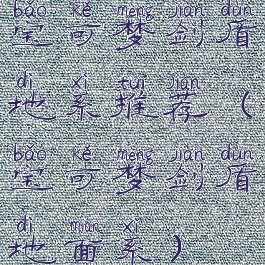 bǎo kě mèng jiàn dùn
宝可梦剑盾
dì xì tuī jiàn
地系推荐（
bǎo kě mèng jiàn dùn
宝可梦剑盾
dì miàn xì
地面系）